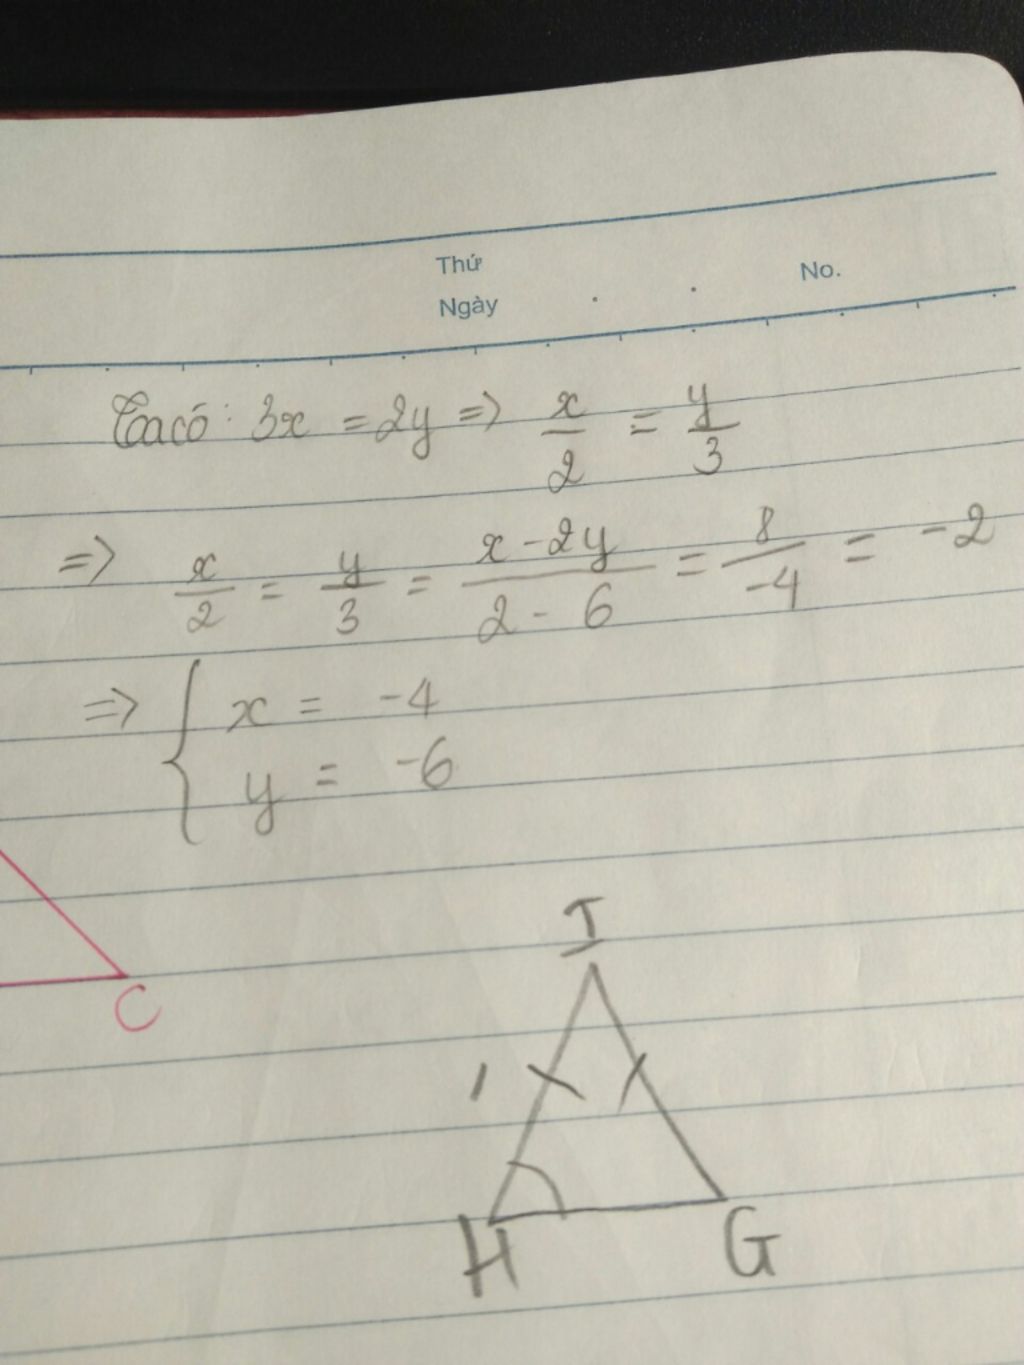 Thứ
Ngày
No.
Ta có: 3x = 2y => x/2 = y/3
=> x/2 = y/3 = x-2y/2-6 = 8/-4 = -2
=> { x = -4
y = -6
C
I
H
G